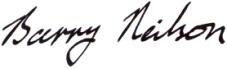 Barry Neilson